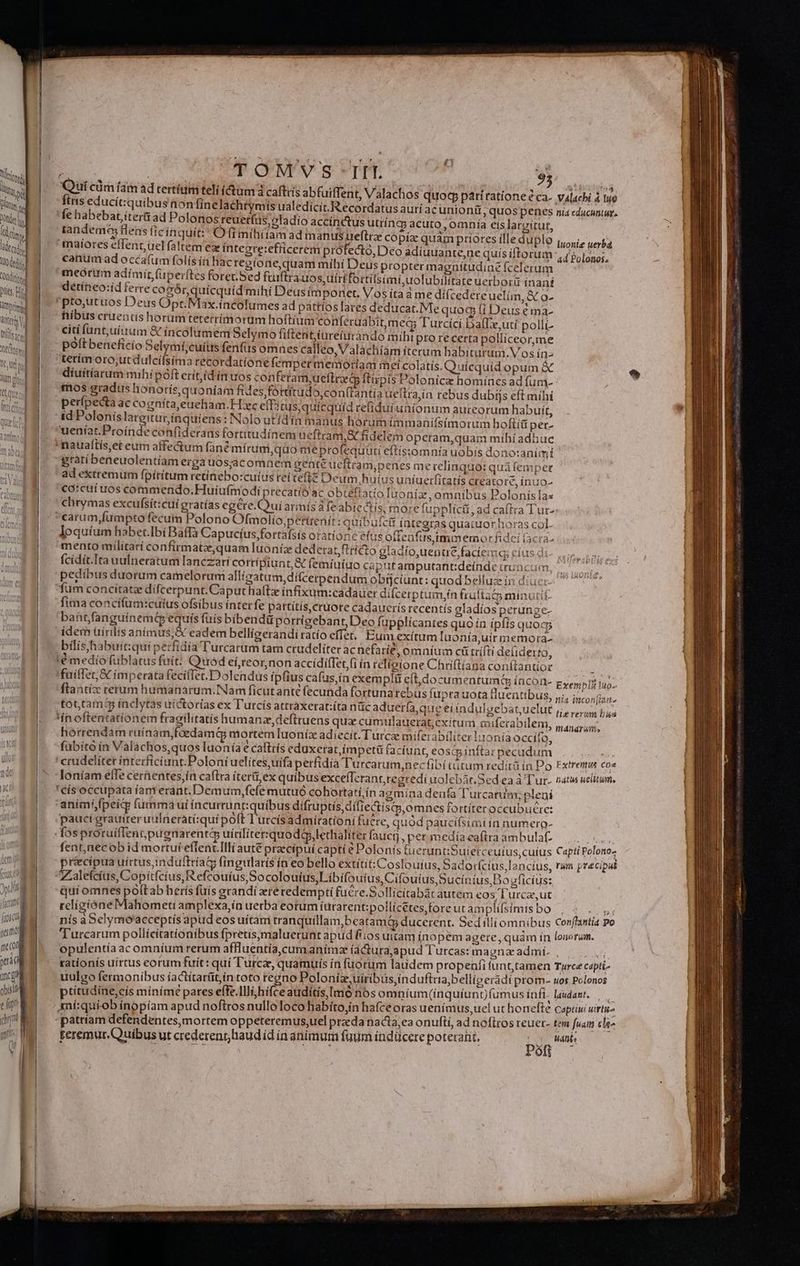 TOMVS III. 93
Qui cùm iam ad tertium teli ictum à castris abfuissent, Valachos quoq; pari ratione è ca-
stris educit: quibus non sine lachrymis ualedicit. Recordatus auri ac unionū, quos penes
se habebat, iterū ad Polonos reuersus, gladio accinctus utrinq; acuto, omnia eis largitur,
tandemq; flens sic inquit: O si mihi iam ad manus uestræ copiæ quàm priores ille duplo
maiores essent, uel saltem eæ integræ: efficerem profectò, Deo adiuuante, ne quis istorum
canum ad occasum solis in hac regione, quam mihi Deus propter magnitudinē scelerum
meorum adimit, superstes foret. Sed frustra uos, uiri fortissimi, uolubilitate uerborū inani
detineo: id ferre cogōr, quicquid mihi Deus imponet. Vos ita à me discedere uelim, & o-
pto, ut uos Deus Opt. Max. incolumes ad patrios lares deducat. Me quoq; si Deus è ma-
nibus cruentis horum teterrimorum hostium conseruabit, meq; Turcici Bassæ, uti polli-
citi sunt, uiuum & incolumem Selymo stiterit, iureiurando mihi pro re certa polliceor, me
pòst beneficio Selymi, cuius sensus omnes calleo, Valachiam iterum habiturum. Vos in-
terim oro, ut dulcissima recordatione semper memoriam mei colatis. Quicquid opum &
diuitiarum mihi pòst erit, id in uos conferam, uestræq; stirpis Polonicæ homines ad sum-
mos gradus honoris, quoniam fides, fortitudo, constantia uestra, in rebus dubijs est mihi
perspecta ac cognita, eueham. Hæc effatus, quicquid residui unionum aureorum habuit,
id Polonis largitur, inquiens: Nolo ut id in manus horum immanissimorum hostiū per-
ueniat. Proinde considerans fortitudinem uestram, & fidelem operam, quam mihi adhuc
nauastis, et eum affectum sanè mirum, quo me prosequuti estis, omnia uobis dono: animi
grati beneuolentiam erga uos, ac omnem gentē uestram, penes me relinquo: quā semper
ad extremum spiritum retinebo: cuius rei testē Deum, huius uniuersitatis creatorē, inuo-
co: cui uos commendo. Huiusmodi precatio ac obtestatio Iuoniæ, omnibus Polonis la-
chrymas excussit: cui gratias egêre. Qui armis à se abiectis, more supplicū, ad castra Tur-
carum, sumpto secum Polono Osmolio, peruenit: quibuscū integras quatuor horas col-
loquium habet. Ibi Bassa Capucius, fortassis oratione eius offensus, immemor fidei sacra-
mento militari confirmatæ, quam Iuoniæ dederat, stricto gladio, uentrē, faciemq; eius di-
scidit. Ita uulneratum Ianczari corripiunt, & semiuiuo caput amputant: deinde truncum,
pedibus duorum camelorum alligatum, discerpendum obijciunt: quod belluæ in diuer-
sum concitatæ discerpunt. Caput hastæ infixum: cadauer discerptum, in frustaq; minutis-
sima concisum: cuius ossibus inter se partitis, cruore cadaueris recentis gladios perunge-
bant, sanguinemq; equis suis bibendū porrigebant, Deo supplicantes quo in ipsis quoq;
idem uirilis animus, & eadem belligerandi ratio esset. Eum exitum Iuonia, uir memora-
bilis, habuit: qui perfidia Turcarum tam crudeliter ac nefariè, omnium cū tristi desiderio,
è medio sublatus fuit: Quod ei, reor, non accidisset, si in religione Christiana constantior
fuisset, & imperata fecisset. Dolendus ipsius casus, in exemplū est, documentumq; incon-
stantiæ rerum humanarum. Nam sicut antè secunda fortuna rebus supra uota fluentibus,
tot, tamq; inclytas uictorias ex Turcis attraxerat: ita nūc aduersa, quæ ei indulgebat, uelut
in ostentationem fragilitatis humanæ, destruens quæ cumulauerat, exitum miserabilem,
horrendam ruinam, fœdamq; mortem Iuoniæ adiecit. Turcæ miserabiliter Iuonia occiso,
subitò in Valachos, quos Iuonia è castris eduxerat, impetū faciunt, eosq; instar pecudum
crudeliter interficiunt. Poloni uelites, uisa perfidia Turcarum, nec sibi tutum reditū in Po
loniam esse cernentes, in castra iterū, ex quibus excesserant, regredi uolebāt. Sed ea à Tur-
cis occupata iam erant. Demum, sese mutuò cohortati, in agmina densa Turcarum, pleni
animi, speiq; summa ui incurrunt: quibus disruptis, disiectisq;, omnes fortiter occubuêre:
pauci grauiter uulnerati: qui pòst Turcis admirationi fuêre, quòd paucissimi in numero-
sos proruissent, pugnarentq; uiriliter: quodq;, lethaliter saucij, per media castra ambulas-
sent, nec ob id mortui essent. Illi autē præcipui capti è Polonis fuerunt: Suierceuius, cuius
præcipua uirtus, industriaq; singularis in eo bello extitit: Coslouius, Sadorscius, Iancius,
Zalescius, Copitscius, Rescouius, Socolouius, Libisouius, Cisouius, Sucinius, Bogsicius:
qui omnes pòst ab heris suis grandi ære redempti fuêre. Sollicitabāt autem eos Turcæ, ut
religione Mahometi amplexa, in uerba eorum iurarent: pollicētes, fore ut amplissimis bo
nis à Selymo acceptis apud eos uitam tranquillam, beatamq; ducerent. Sed illi omnibus
Turcarum pollicitationibus spretis, maluerunt apud suos uitam inopem agere, quàm in
opulentia ac omnium rerum affluentia, cum animæ iactura, apud Turcas: magnæ admi-
rationis uirtus eorum fuit: qui Turcæ, quamuis in suorum laudem propensi sunt, tamen
uulgo sermonibus iactitarūt, in toto regno Poloniæ, uiribus, industria, belligerādi prom-
ptitudine, eis minimè pares esse. Illi, hisce auditis, Imò nos omnium (inquiunt) sumus infi-
mi: qui ob inopiam apud nostros nullo loco habito, in hasce oras uenimus, uel ut honestè
patriam defendentes, mortem oppeteremus, uel præda nacta, ea onusti, ad nostros reuer-
teremur. Quibus ut crederent, haud id in animum suum inducere poterant.
Pòst
Valachi à suo
nia educuntur.
Iuoniæ uerba
ad Polonos.
Miserabilis exi
tus Iuoniæ.
Exemplū Iuo-
nia inconstan-
tiæ rerum hu-
manarum.
Extremus co-
natus uelitum.
Capti Polono-
rum præcipui
Constantia Po
lonorum.
Turcæ capti-
uos Polonos
laudant.
Captiui uirtu-
tem suam ele-
uant.